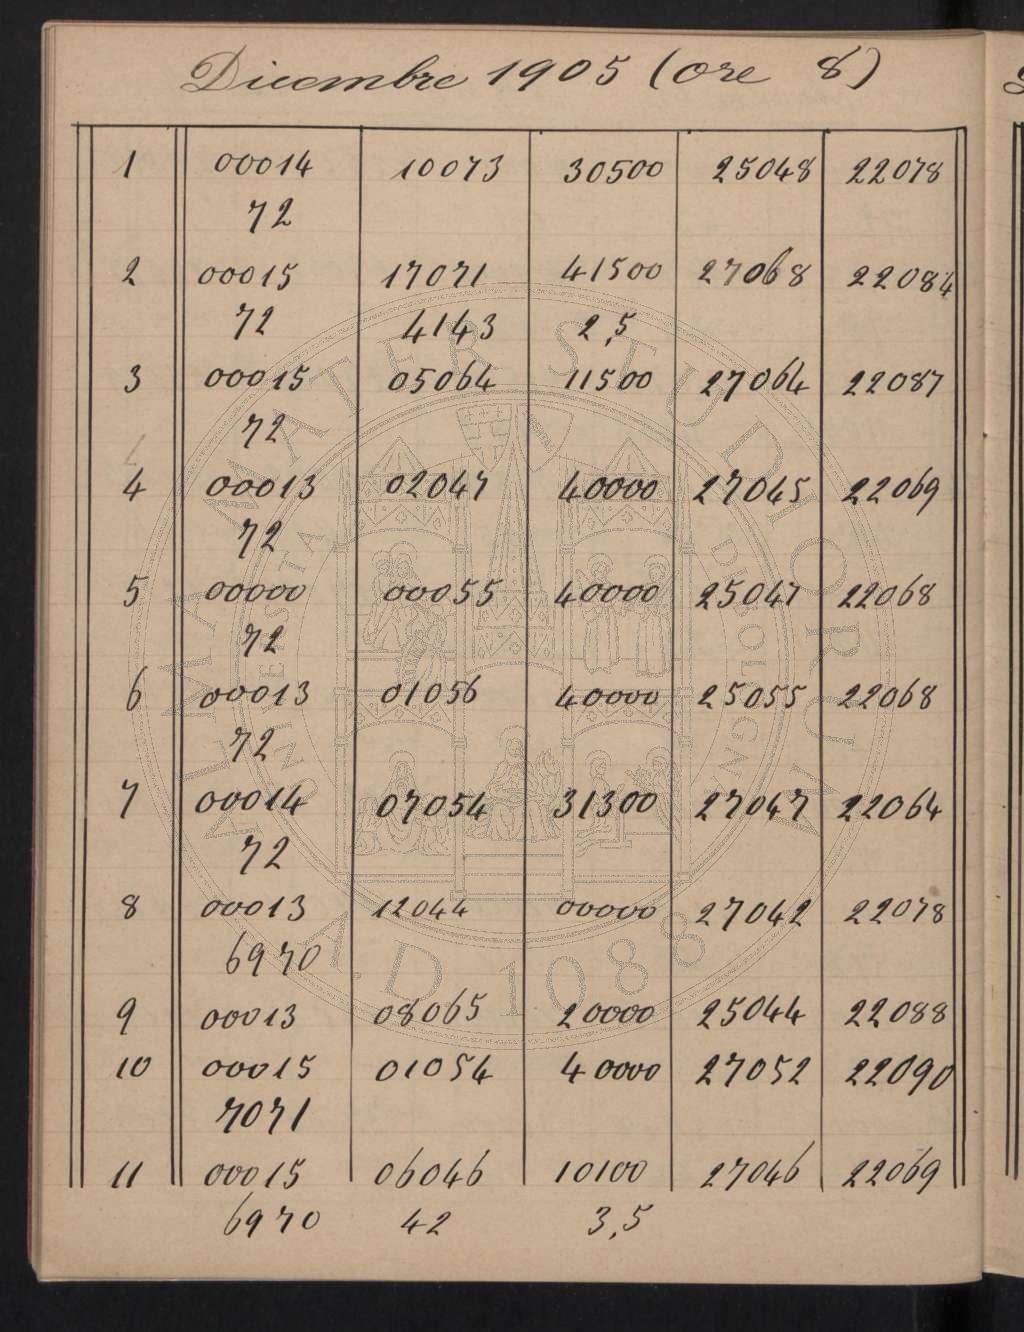 Dicembre 1905 (ore 8)
1 00014 10073 30500 25048 22078
72
2 00015 17071 41500 27068 22084
72 4143 2,5
3 00015 05064 11500 27064 22087
72
4 00013 02047 40000 27045 22069
72
5 00000 00055 40000 25047 22068
72
6 00013 01056 40000 25055 22068
72
7 00014 07054 31300 27047 22064
72
8 00013 12044 00000 27042 22078
6970
9 00013 08065 20000 25044 22088
10 00015 01054 40000 27052 22090
7071
11 00015 06046 10100 27046 22069
6970 42 3,5
ALMA MATER STUDIORUM
UNIVERSITA DI BOLOGNA
A.D. 1088